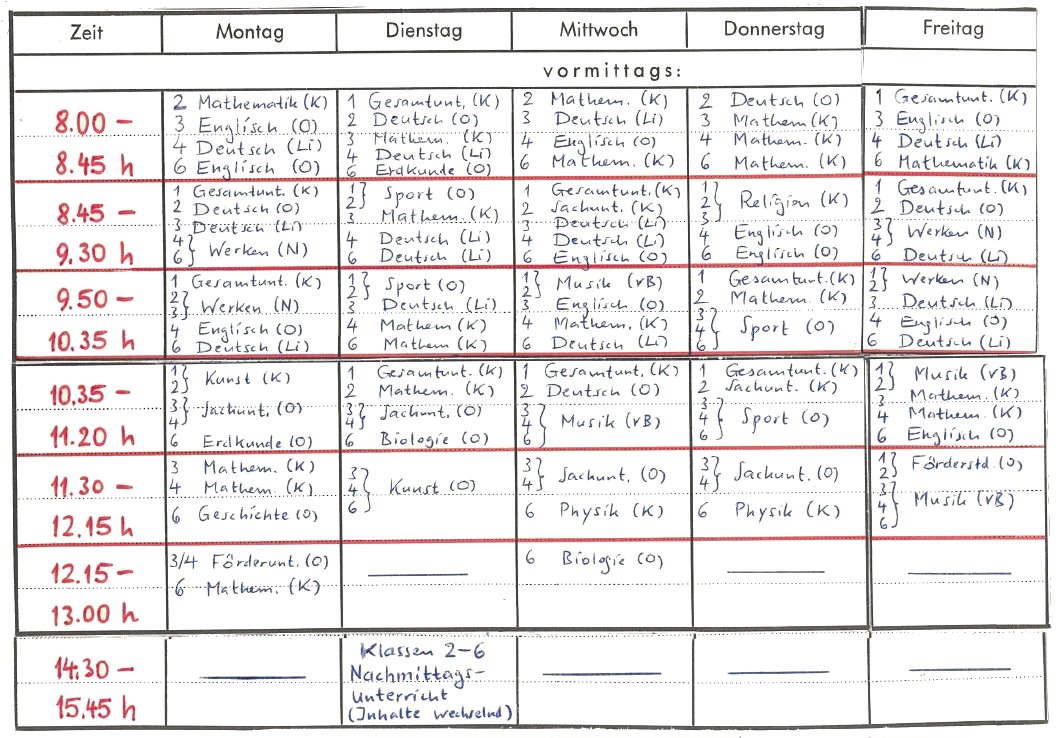 Zeit Montag Dienstag Mittwoch Donnerstag Freitag
vormittags:
8.00 – 8.45 h
2 Mathematik (K)
3 Englisch (O)
4 Deutsch (Li)
6 Englisch (O)
1 Gesamtunt. (K)
2 Deutsch (O)
3 Mathem. (K)
4 Deutsch (Li)
6 Erdkunde (O)
2 Mathem. (K)
3 Deutsch (Li)
4 Englisch (O)
6 Mathem. (K)
2 Deutsch (O)
3 Mathem (K)
4 Mathem. (K)
6 Mathem. (K)
1 Gesamtunt. (K)
3 Englisch (O)
4 Deutsch (Li)
6 Mathematik (K)
8.45 – 9.30 h
1 Gesamtunt. (K)
2 Deutsch (O)
3 Deutsch (Li)
4 6 } Werken (N)
1 2 } Sport (O)
3 Mathem. (K)
4 Deutsch (Li)
6 Deutsch (Li)
1 Gesamtunt. (K)
2 Sachunt. (K)
3 Deutsch (Li)
4 Deutsch (Li)
6 Englisch (O)
1 2 3 } Religion (K)
4 Englisch (O)
6 Englisch (O)
1 Gesamtunt. (K)
2 Deutsch (O)
3 4 } Werken (N)
6 Deutsch (Li)
9.50 – 10.35 h
1 Gesamtunt. (K)
2 3 } Werken (N)
4 Englisch (O)
6 Deutsch (Li)
1 2 } Sport (O)
3 Deutsch (Li)
4 Mathem (K)
6 Mathem (K)
1 2 } Musik (vB)
3 Englisch (O)
4 Mathem. (K)
6 Deutsch (Li)
1 Gesamtunt. (K)
2 Mathem. (K)
3 4 6 } Sport (O)
1 2 } Werken (N)
3 Deutsch (Li)
4 Englisch (O)
6 Deutsch (Li)
10.35 – 11.20 h
1 2 } Kunst (K)
3 4 } Sachunt. (O)
6 Erdkunde (O)
1 Gesamtunt. (K)
2 Mathem. (K)
3 4 } Sachunt. (O)
6 Biologie (O)
1 Gesamtunt. (K)
2 Deutsch (O)
3 4 6 } Musik (vB)
1 Gesamtunt. (K)
2 Sachunt. (K)
3 4 6 } Sport (O)
1 2 } Musik (vB)
3 Mathem. (K)
4 Mathem. (K)
6 Englisch (O)
11.30 – 12.15 h
3 Mathem. (K)
4 Mathem. (K)
6 Geschichte (O)
3 4 6 } Kunst (O)
3 4 } Sachunt. (O)
6 Physik (K)
3 4 } Sachunt. (O)
6 Physik (K)
1 2 } Förderstd. (O)
3 4 6 } Musik (vB)
12.15 – 13.00 h
3/4 Förderunt. (O)
6 Mathem. (K)
6 Biologie (O)
14.30 – 15.45 h
Klassen 2–6
Nachmittags-
unterricht
(Inhalte wechselnd)